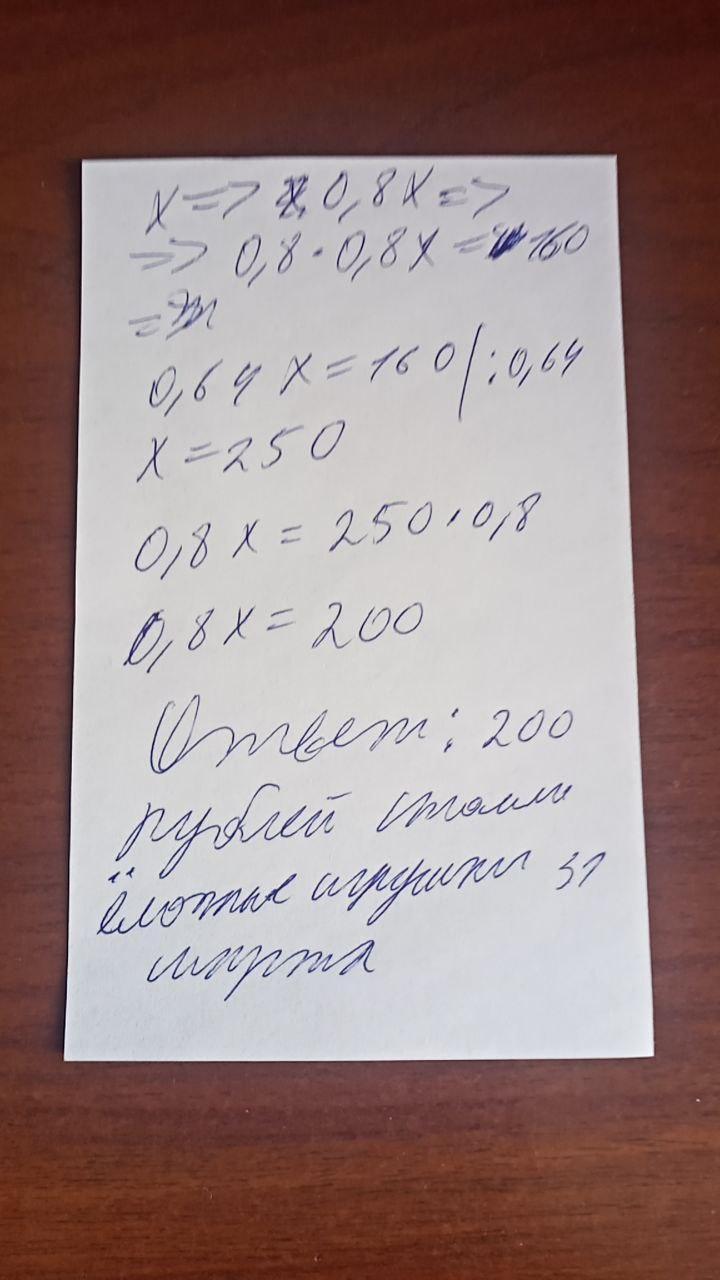 x => 0,8x =>
=> 0,8·0,8x = 160
=
0,64x = 160 | :0,64
x = 250
0,8x = 250·0,8
0,8x = 200
Ответ: 200
рублей стоили
ёлочные игрушки 31
марта